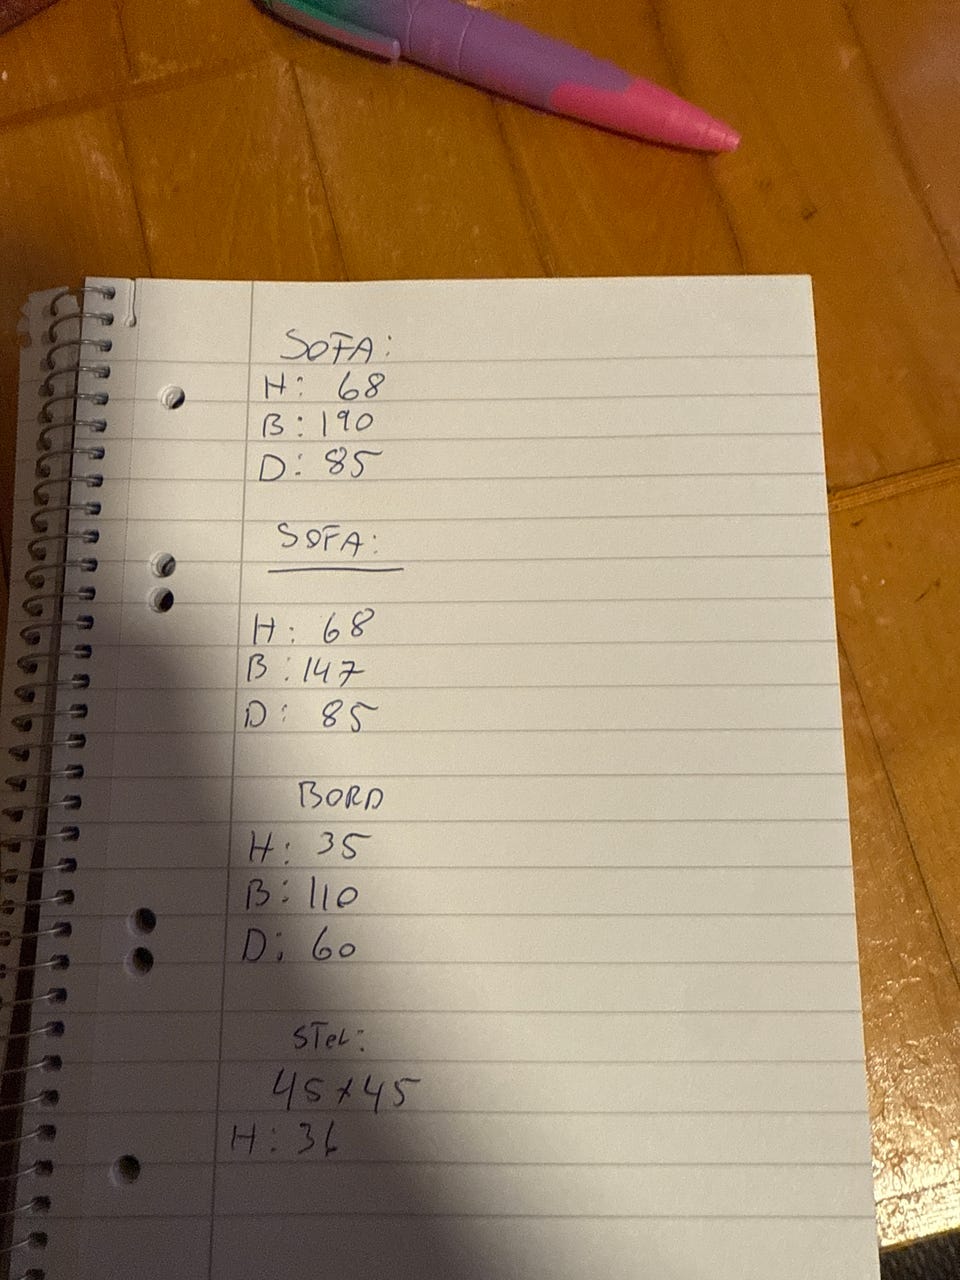 SOFA:
H: 68
B: 190
D: 85
SOFA:
H: 68
B: 147
D: 85
BORD
H: 35
B: 110
D: 60
STeL:
45x45
H: 36